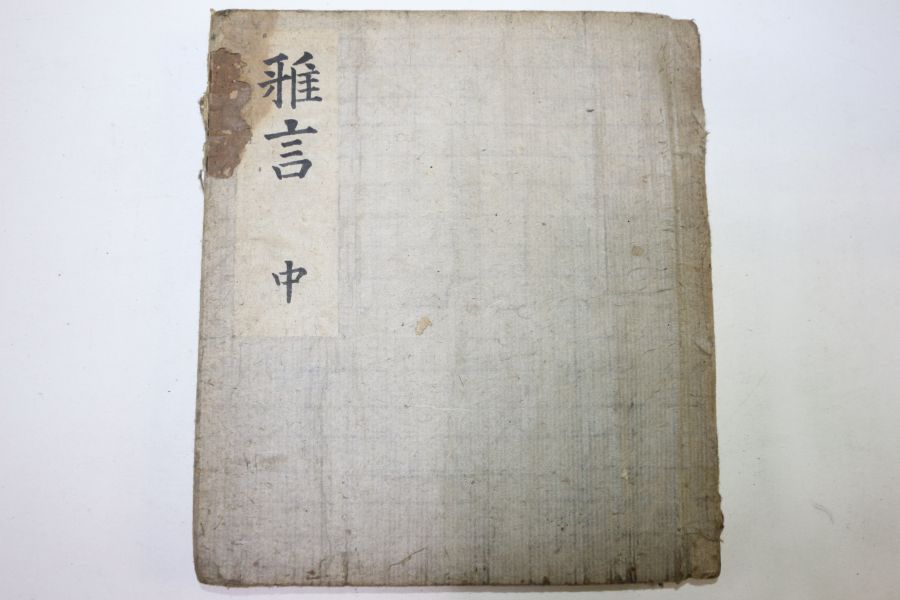 雅言 中